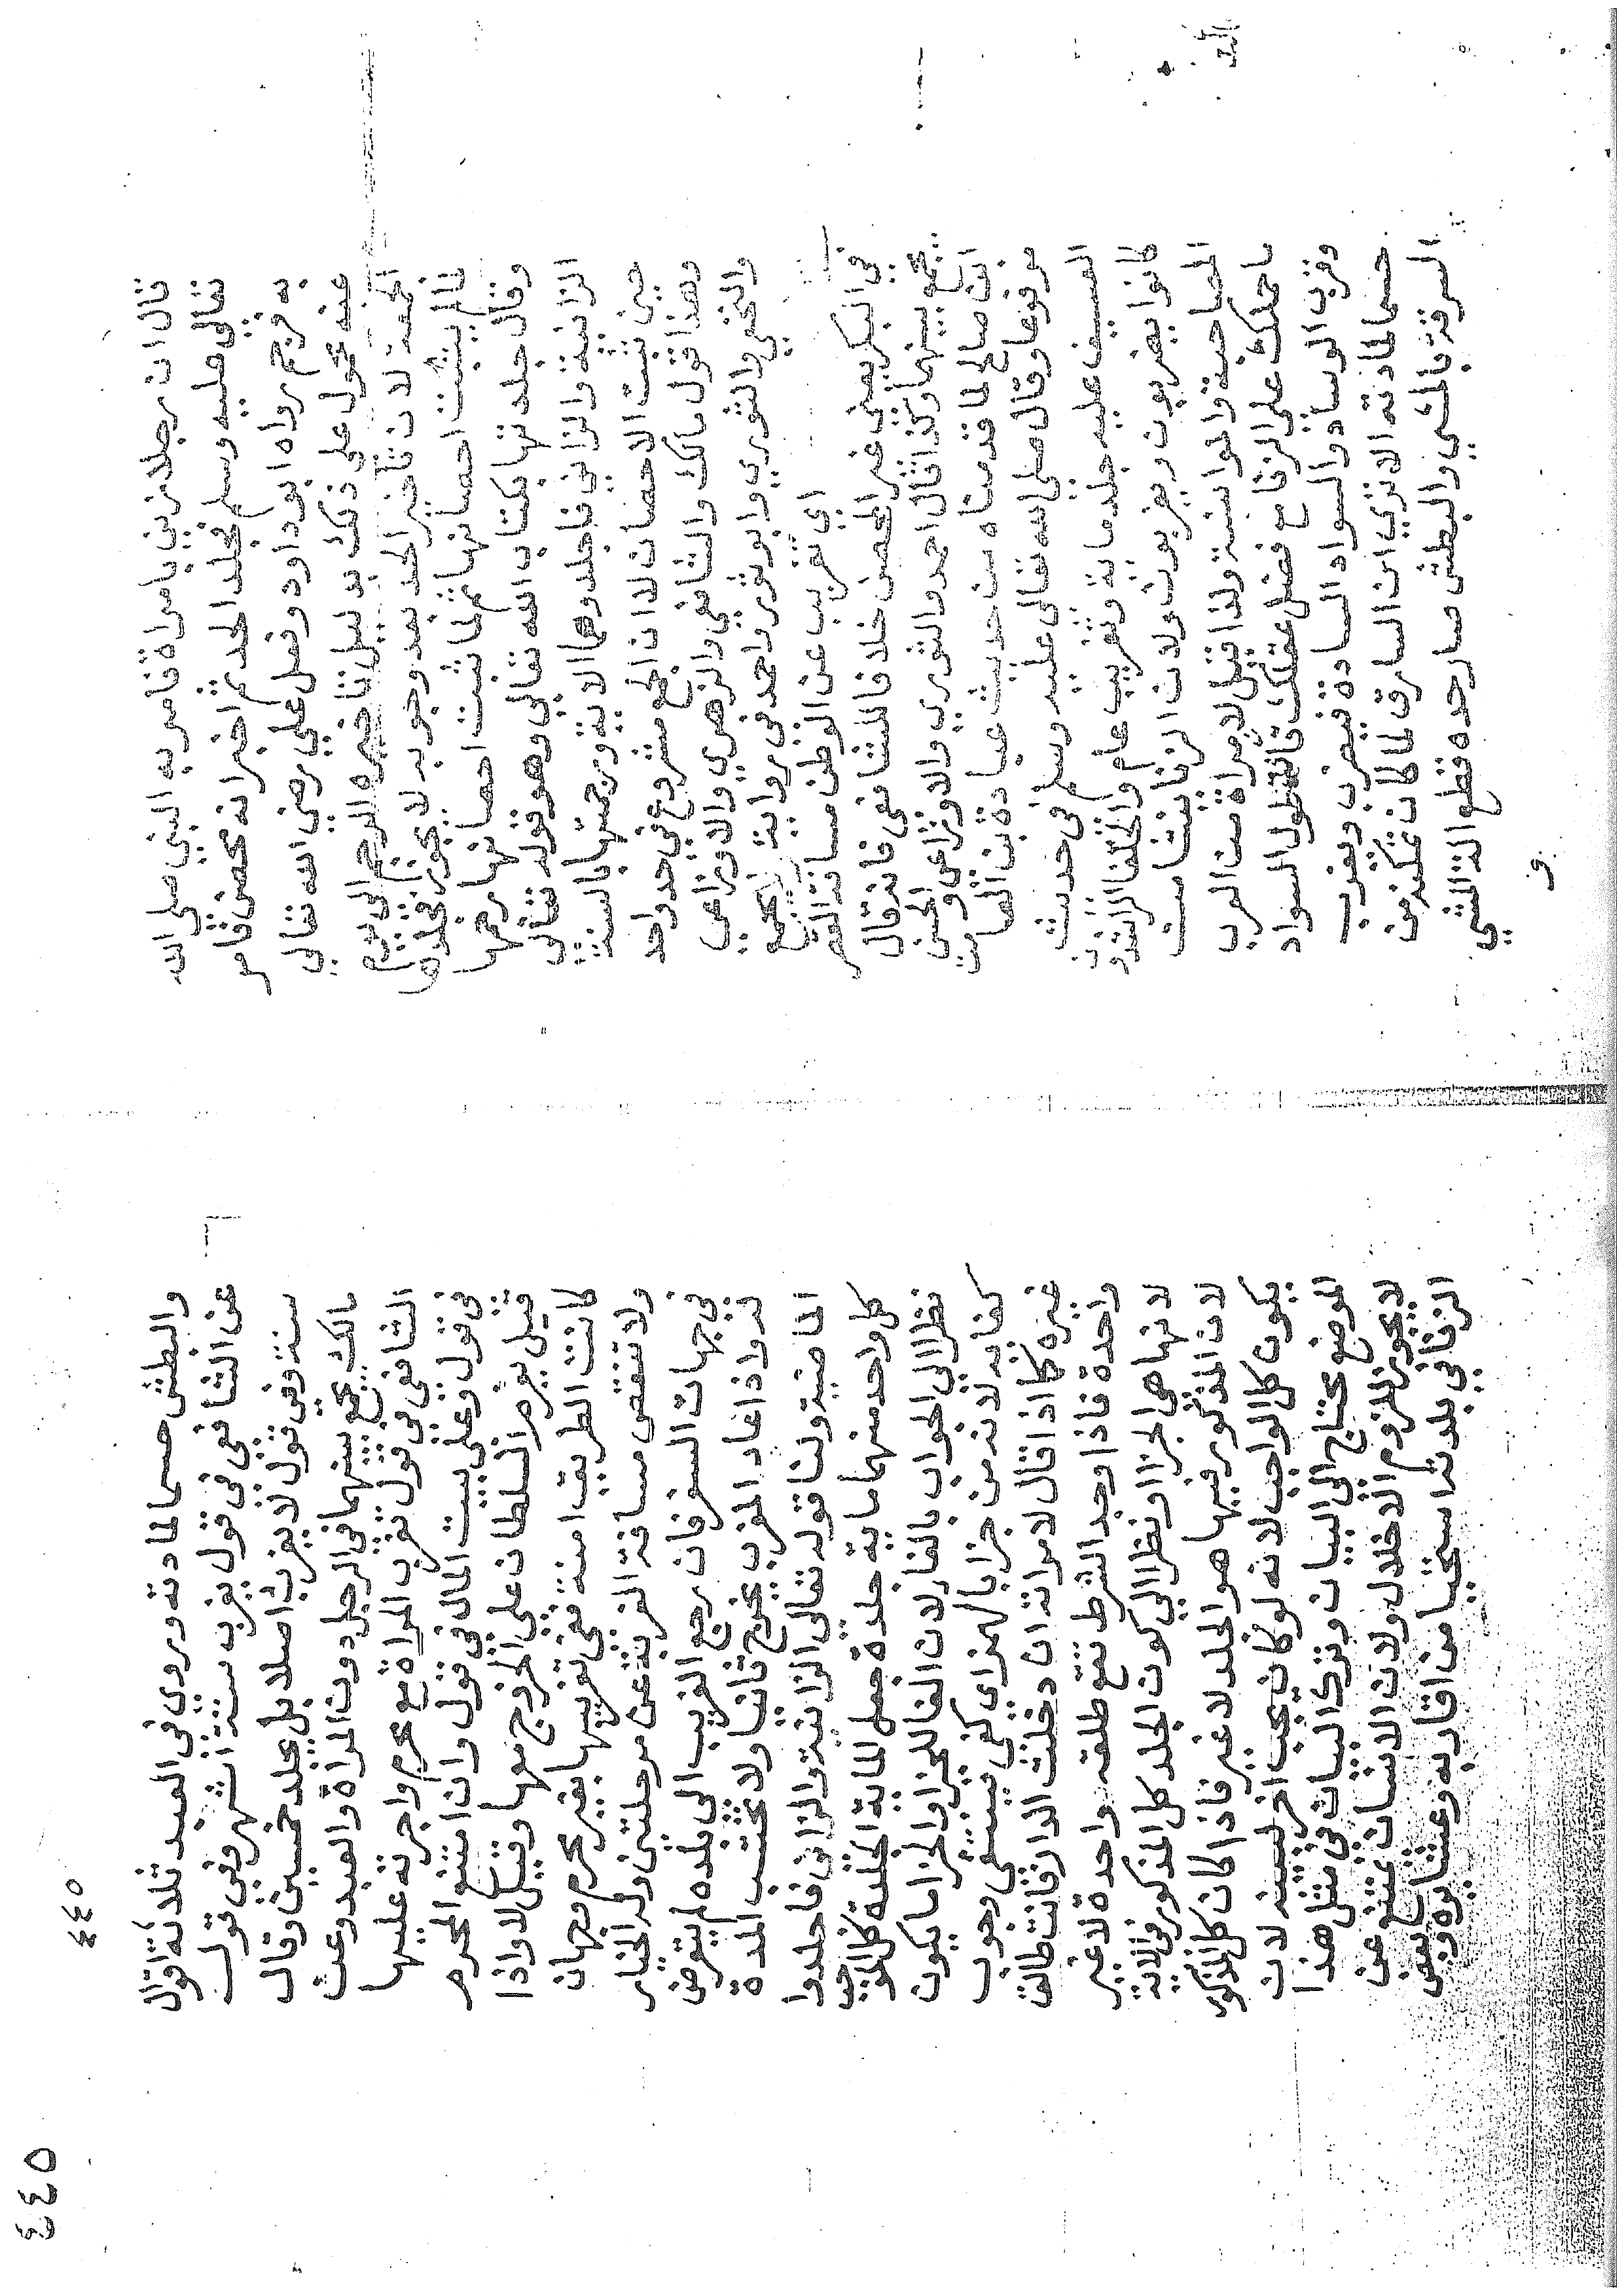 قال ان رجلا زني بامراة فامر به النبي صلي الله
تعالي عليه وسلم فجلد الحد ثم اخبر انه محصن فامر
به فرجم رواه ابو داود وفعل علي رضي الله تعالي
عنه محمول علي ذلك بدليل تاخيره الرجم الي يوم
الجمعة لان تاخير الحد بعد وجوبه لا يجوز فجلدها
لما لم يثبت احصانها ثم لما ثبت احصانها رجمها
وقال جلدتها بكتاب الله تعالي وهو قوله تعالي
الزانية والزاني فاجلدوهما الاية ورجمتها بالسنة
حين ثبت الاحصان لا ان الجمع مشروع في حد واحد
وهذا قول مالك والشافعي والزهري والاوزاعي
والنخعي والثوري وابو ثور واحمد في رواية
اي تغريب عن الوطن مسافة القصر
في البكر يعني غير المحصن خلافا للشافعي فانه قال
يجمع بينهما وكذا قال احمد والثوري والاوزاعي والحسن
ابن صالح لما قدمناه من حديث عبادة بن الصامت
مرفوعا وقال صلي الله تعالي عليه وسلم في حديث
العسيف عليه جلد مائة وتغريب عام والخلفا الراشدون
كانوا يضربون ويغربون ولان الزنا ينشا من
المصاحبة والموانسة ولذا قيل لامراة من العرب
ما حملك علي الزنا مع فضل عقلك قالت طول السواد
وقرب الوساد والسواد السادة فيضرب ويغرب
حسما لمادته الا تري ان السارق لما كان تمكنه من
السرقة بالمشي والبطش صار حده قطع الة المشي
و
٤٤٥
٤٤٥
والبطش حسما لمادته وروي في العبد ثلاثة اقوال
عن الشافعي في قول يغرب ستة اشهر وفي قول
سنة وفي قول لا يغرب اصلا بل يجلد خمسين وقال
مالك يجمع بينهما في الرجل دون المراة والعبد وعن
الشافعي في قول تغرب المراة مع محرم واجرته عليها
في قول وعلي بيت المال في قول وان امتنع المحرم
قيل يجبره السلطان علي الخروج معها وقيل لا واذا
كانت الطريق امنة ففي تغريبها بغير محرم وجهان
ولا تنقص مسافة الغربة عن مرحلتين وله الخيار
في جهات السفر فان رجع الغريب الي بلده لم يتعرض
له واذا عاد المغرب يخرج ثانيا ولا تحتسب المدة
الماضية ولنا قوله تعالي الزانية والزاني فاجلدوا
كل واحد منهما ماية جلدة جعل الماية الجلدة كل الموجب
نظرا الي الجواب بالفا لان الفا للجزا والجزا ما يكون
كفاية لانه من جزا بالهمز اي كفي فيبتني وجوب
غيره كما اذا قال لامراته ان دخلت الدار فانت طالق
واحدة فاذا وجد الشرط تقع طلقة واحدة لا غير
لانها هي الجزا او نظرا الي كون الجلد كل المذكور في الاية
لان المذكور فيها هو الجلد لا غير فاذا كان كل المذكور
يكون كل الواجب لانه لو كان يجب اخر لبينه لان
الموضع محتاج الي البيان وترك البيان في مثل هذا
لا يجوز للزوم الاخلال ولان الانسان يمتنع عن
الزنا في بلده استحيا من اقاربه وعشايره وبعض